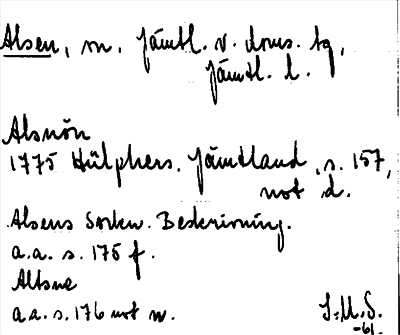 Alsen, sn. Jämtl. v. doms. tg,
Jämtl. l.
Alsnön
1775 Hülphers. Jämtland, s. 157,
not d.
Alsens Sockn. Beskrivning.
a.a. s. 175 f.
Altsne
a.a. s. 176 not m.
S.M.S.
-61.